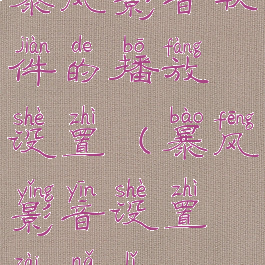 暴风影音软
jiàn de bō fàng
件的播放
shè zhì bào fēng
设置（暴风
yǐng yīn shè zhì
影音设置
zài nǎ lǐ